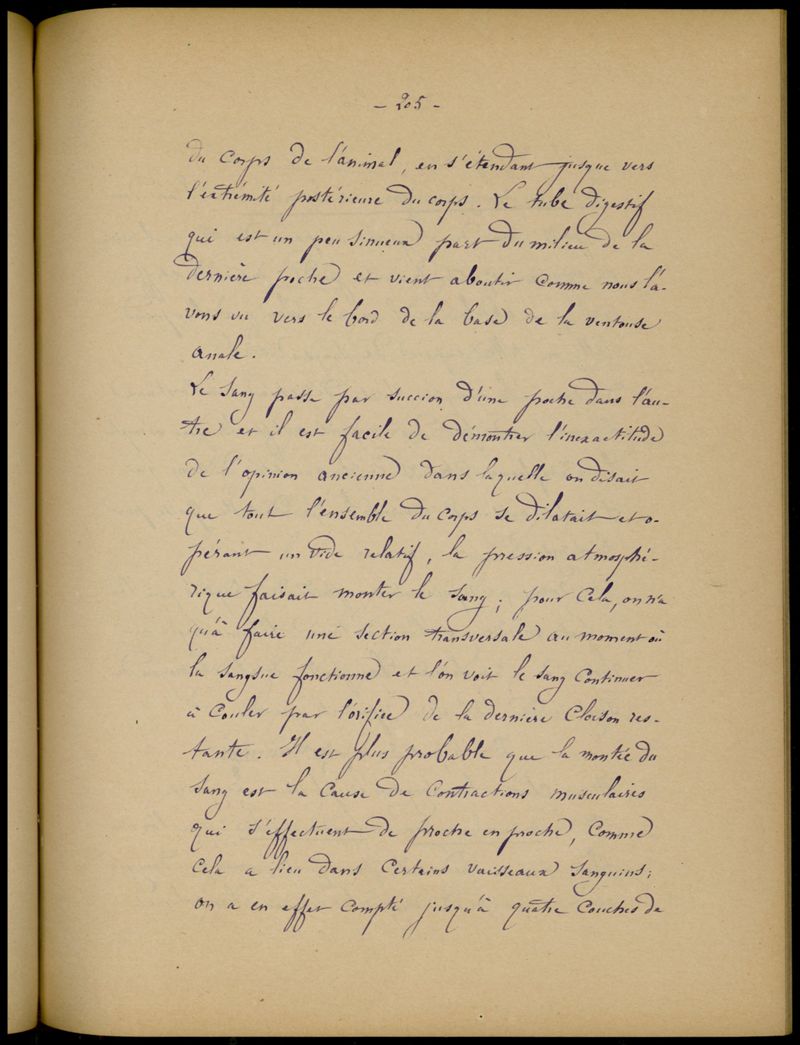 - 205 -
du corps de l'animal, en s'étendant jusque vers
l'extrémité postérieure du corps. Le tube digestif
qui est un peu sinueux part du milieu de la
dernière poche et vient aboutir comme nous l'a-
vons vu vers le bord de la base de la ventouse
anale.
Le sang passe par succion d'une poche dans l'au-
tre et il est facile de démontrer l'inexactitude
de l'opinion ancienne dans laquelle on disait
que tout l'ensemble du corps se dilatait et o-
pérant un vide relatif, la pression atmosphé-
rique faisait monter le sang; pour cela, on n'a
qu'à faire une section transversale au moment où
la sangsue fonctionne et l'on voit le sang continuer
à couler par l'orifice de la dernière cloison res-
tante. Il est plus probable que la montée du
sang est la cause de contractions musculaires
qui s'effectuent de proche en proche, comme
cela a lieu dans certains vaisseaux sanguins;
on a en effet compté jusqu'à quatre couches de